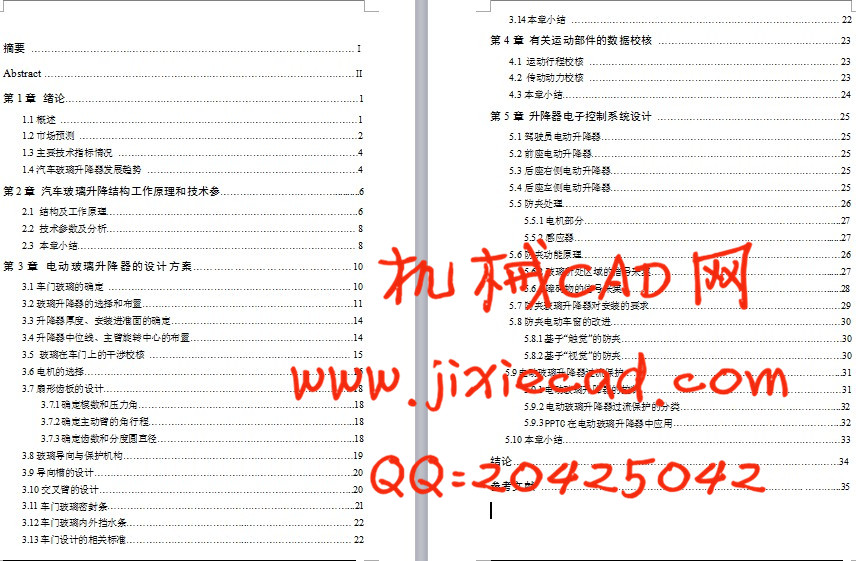 摘要 ........ I
Abstract ........ II
第 1 章 绪论 ........ 1
1.1 概述 ........ 1
1.2 市场预测 ........ 2
1.3 主要技术指标情况 ........ 4
1.4 汽车玻璃升降器发展趋势 ........ 4
第 2 章 汽车玻璃升降结构工作原理和技术参 ........ 6
2.1 结构及工作原理 ........ 6
2.2 技术参数及分析 ........ 8
2.3 本章小结 ........ 8
第 3 章 电动玻璃升降器的设计方案 ........ 10
3.1 车门玻璃的确定 ........ 10
3.2 玻璃升降器的选择和布置 ........ 11
3.3 升降器厚度、安装进准面的确定 ........ 14
3.4 升降器中位线、主臂旋转中心的布置 ........ 14
3.5 玻璃在车门上的干涉校核 ........ 15
3.6 电机的选择 ........
3.7 扇形齿板的设计 ........ 18
3.7.1 确定模数和压力角 ........ 18
3.7.2 确定主动臂的角行程 ........ 18
3.7.3 确定齿数和分度圆直径 ........ 18
3.8 玻璃导向与保护机构 ........ 19
3.9 导向槽的设计 ........ 20
3.10 交叉臂的设计 ........ 20
3.11 车门玻璃密封条 ........ 21
3.12 车门玻璃内外挡水条 ........ 22
3.13 车门设计的相关标准 ........ 22
3.14 本章小结 ........ 22
第 4 章 有关运动部件的数据校核 ........ 23
4.1 运动行程校核 ........ 23
4.2 传动动力校核 ........ 23
4.3 本章小结 ........ 24
第 5 章 升降器电子控制系统设计 ........ 25
5.1 驾驶员电动升降器 ........ 25
5.2 前座电动升降器 ........ 25
5.3 后座右侧电动升降器 ........ 25
5.4 后座左侧电动升降器 ........ 25
5.5 防夹处理 ........ 26
5.5.1 电机部分 ........ 27
5.5.2 感应器 ........ 27
5.6 防夹功能原理 ........ 26
处区域的信号采集 ........ 27
障碍物的信号采集 ........ 28
5.7 防夹玻璃升降器对安装的要求 ........ 29
5.8 防夹电动车窗的改进 ........ 30
5.8.1 基于“触觉”的防夹 ........ 30
5.8.2 基于“视觉”的防夹 ........ 30
5.9 电动玻璃升降器过流保护 ........ 31
5.9.1 电动玻璃升降器的 ........ 31
5.9.2 电动玻璃升降器过流保护的分类 ........ 32
5.9.3 PPTC 在电动玻璃升降器中应用 ........ 32
5.10 本章小结 ........ 33
结论 ........ 34
参考文献 ........ 35
机械CAD网
www.jixiecad.com
QQ=20425042